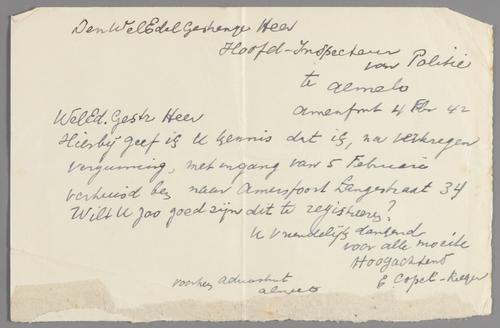 Den WelEdel Gestrenge Heer
Hoofd-Inspecteur
van Politie
te Almelo
Amersfoort 4 Febr 42
WelEd. Gestr Heer
Hierbij geef ik U kennis dat ik, na verkregen
vergunning, met ingang van 5 Februari
verhuisd ben naar Amersfoort Langestraat 34
Wilt U zoo goed zijn dit te registreeren?
U vriendelijk dankend
voor alle moeite
Hoogachtend
E Copel-
voorheen
Almelo